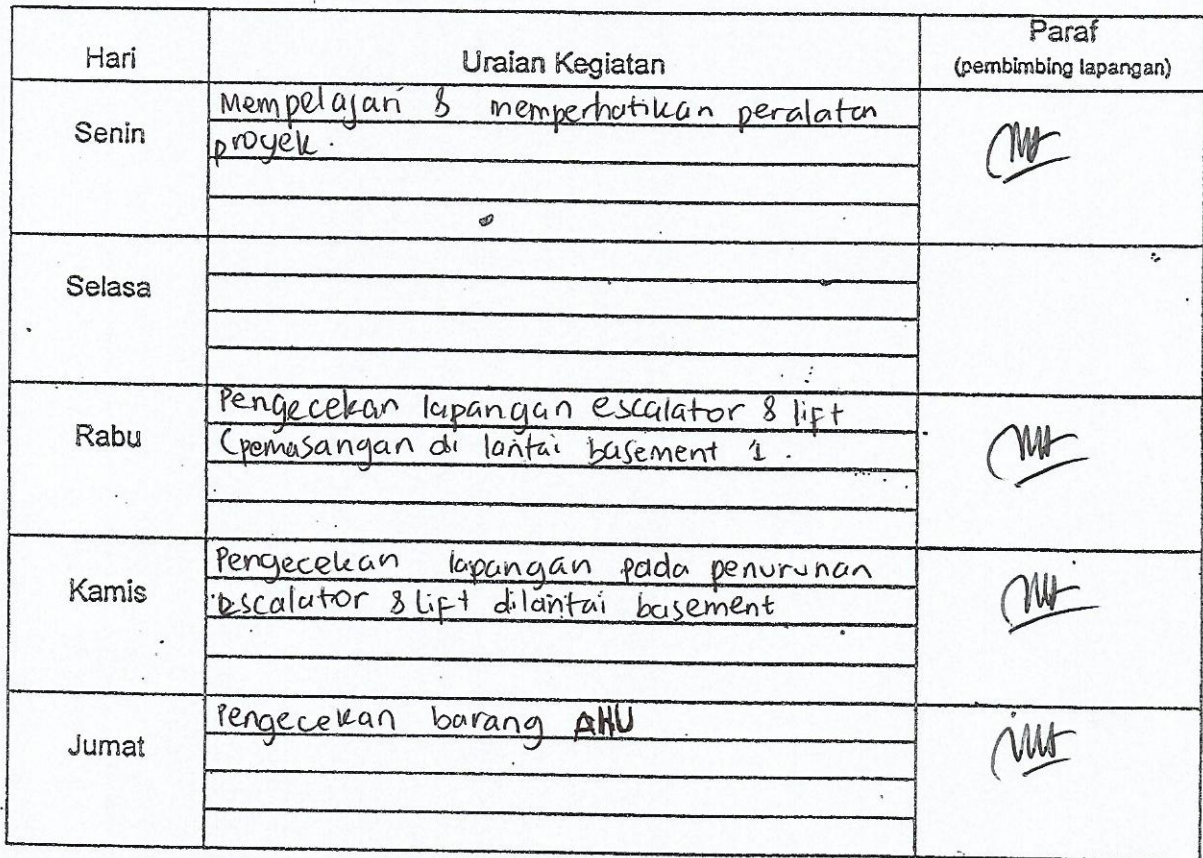 Hari Uraian Kegiatan Paraf
(pembimbing lapangan)
Senin
Mempelajari & memperhatikan peralatan
proyek.
Selasa
Rabu
Pengecekan lapangan escalator & lift
(pemasangan di lantai basement 1.
Kamis
Pengecekan lapangan pada penurunan
escalator & Lift dilantai basement
Jumat
Pengecekan barang AHU